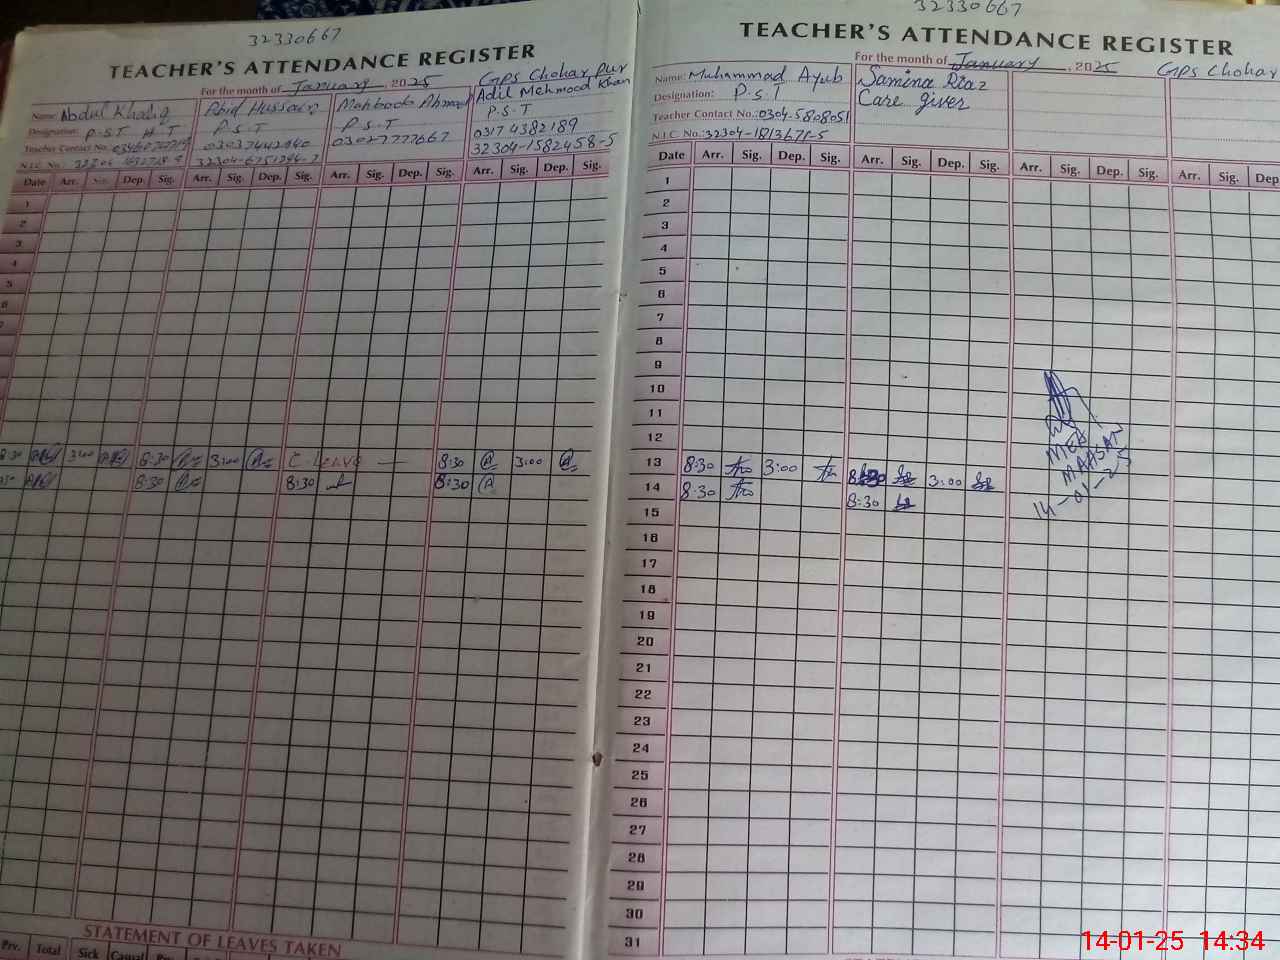 32330667
TEACHER'S ATTENDANCE REGISTER
For the month of January, 2025 GPS Chohar Pur
Name: Abdul Khaliq Abid Hussain Mehboob Ahmad Adil Mehmood Khan
Designation: P.S.T H.T P.S.T P.S.T P.S.T
Teacher Contact No. 03027777667 0317 4382189
N.I.C. No.: 32304-6751294-7 32304-1582458-5
Date Arr. Sig. Dep. Sig. Arr. Sig. Dep. Sig. Arr. Sig. Dep. Sig. Arr. Sig. Dep. Sig.
1
2
3
4
5
6
7
8:30 3:00 8:30 3:00 C. Leave 8:30 3:00
8:30 8:30 8:30
STATEMENT OF LEAVES TAKEN
Prv. Total Sick Casual
32330667
TEACHER'S ATTENDANCE REGISTER
For the month of January, 2025 GPS Chohar
Name: Muhammad Ayub Samina Riaz
Designation: P.S.T Care giver
Teacher Contact No.: 0304-5808051
N.I.C. No.: 32304-1813671-5
Date Arr. Sig. Dep. Sig. Arr. Sig. Dep. Sig. Arr. Sig. Dep. Sig. Arr. Sig. Dep.
1
2
3
4
5
6
7
8
9
10
11
12
13 8:30 3:00 8:30 3:00
14 8:30 8:30
15
16
17
18
19
20
21
22
23
24
25
26
27
28
29
30
31
MEA
MAASAN
14-01-25
14-01-25 14:34